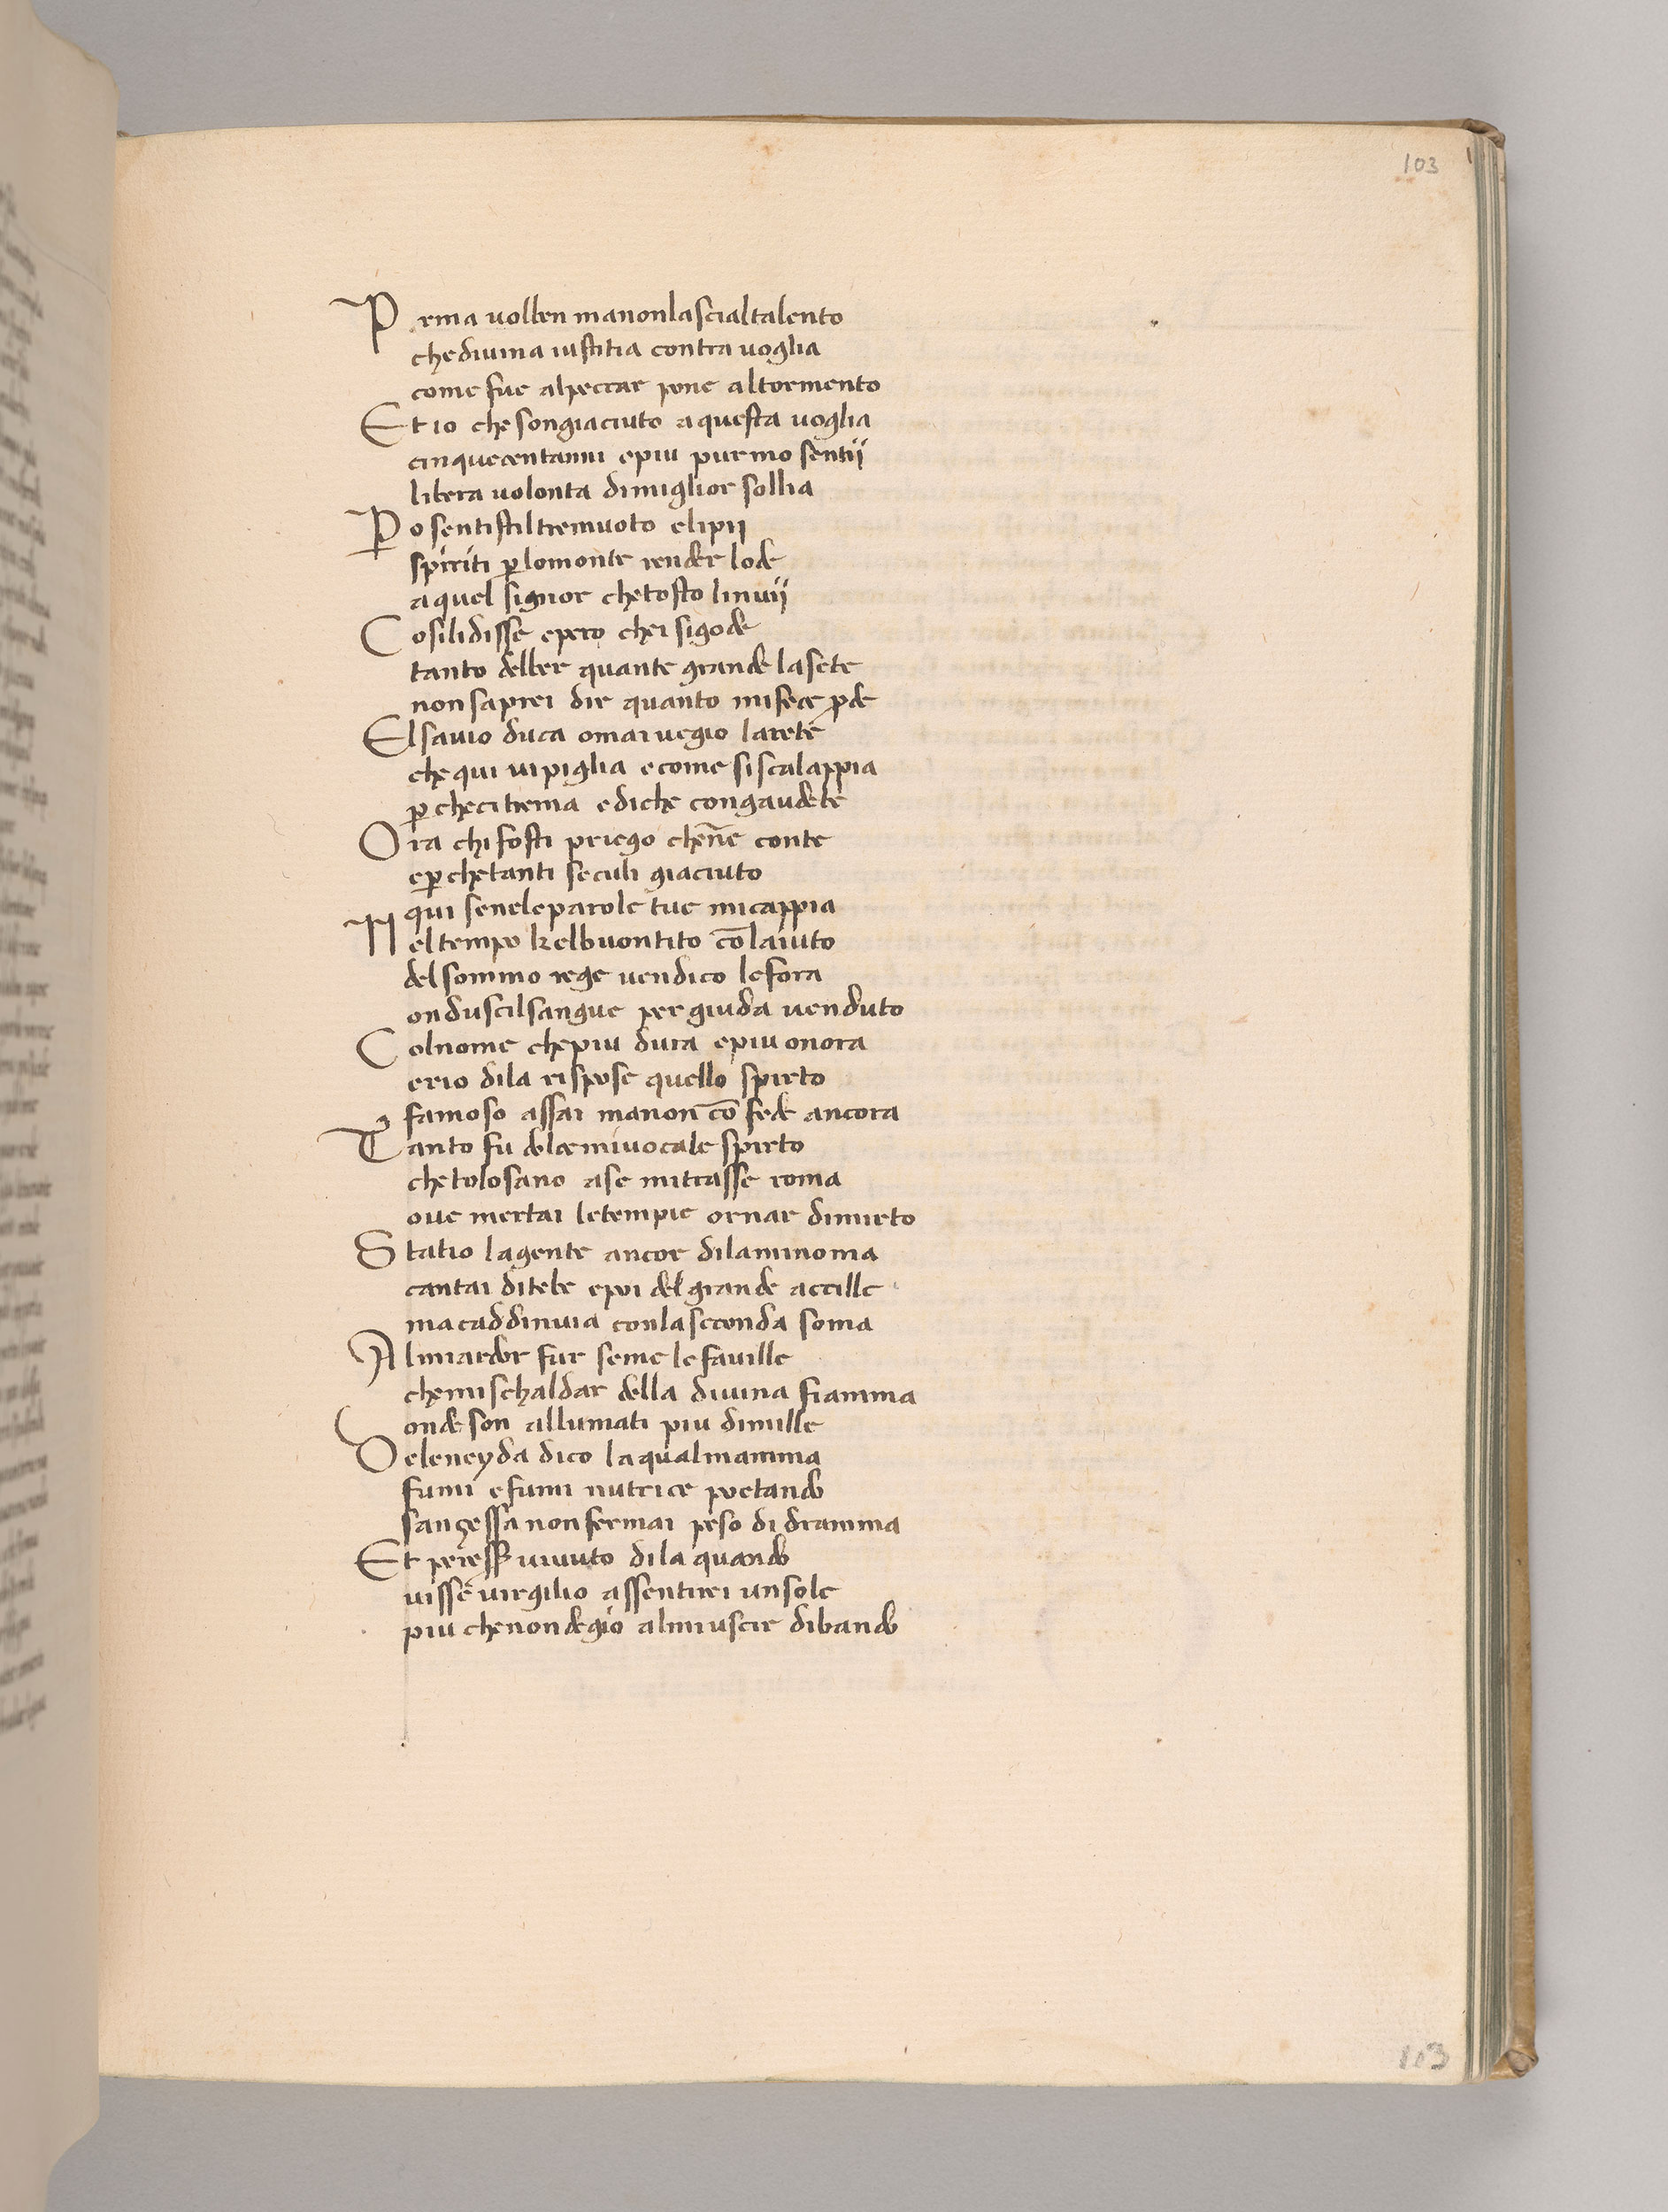 103
Prima vol ben ma non lascial talento
che divina iustitia contra voglia
come fue al peccar pone al tormento
Et io che son giaciuto a questa voglia
cinquecentanni e piu pur mo sentij
libera volonta di miglior sollia
Po sentistil tremuoto elipij
spiriti ꝑ lo monte render lode
a quel signor che tosto linvij
Cosi li disse e pero chei si gode
tanto del ber quante grande la sete
non saprei dir quanto mi fece ꝓde
El savio duca omai vegio larete
che qui vi piglia e come si scalappia
ꝑ che ci trema e di che congaudete
Ora chi fosti priego chēne conte
e ꝑche tanti seculi giaciuto
qui sene le parole tue mi cappia
Nel tempo kel buon tito cō laiuto
del sommo rege vendico le fora
onduscil sangue per giuda venduto
Col nome che piu dura e piu onora
erio di la rispose quello spirto
famoso assai ma non cō fede ancora
Tanto fu dolce mi vocale spirto
che tolosano a se mi trasse roma
ove mertai le tempie ornar di mirto
Statio la gente ancor di la mi noma
cantai di tebe e poi del grande accille
ma caddi in via con la seconda soma
Al mi ardor fur seme le faville
che mi schaldar della divina fiamma
onde son allumati piu di mille
De leneyda dico la qual mamma
fumi e fumi nutrice poetando
sanzessa non fermai peso di dramma
Et per essr vivuto di la quando
visse virgilio assentirei un sole
piu che non degio al mi uscir di bando
113